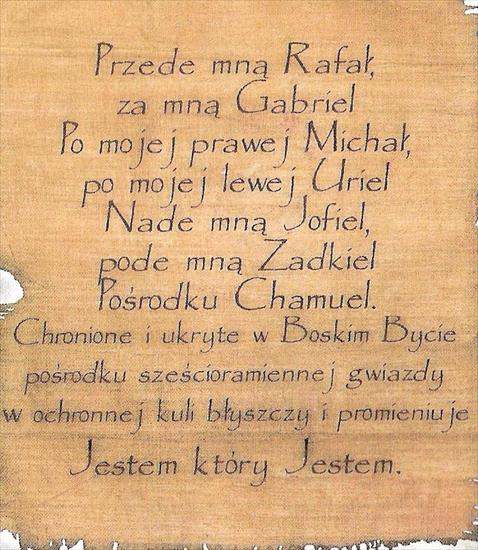 Przede mną Rafał,
za mną Gabriel
Po mojej prawej Michał,
po mojej lewej Uriel
Nade mną Jofiel,
pode mną Zadkiel
Pośrodku Chamuel.
Chronione i ukryte w Boskim Bycie
pośrodku sześcioramiennej gwiazdy
w ochronnej kuli błyszczy i promieniuje
Jestem który Jestem.